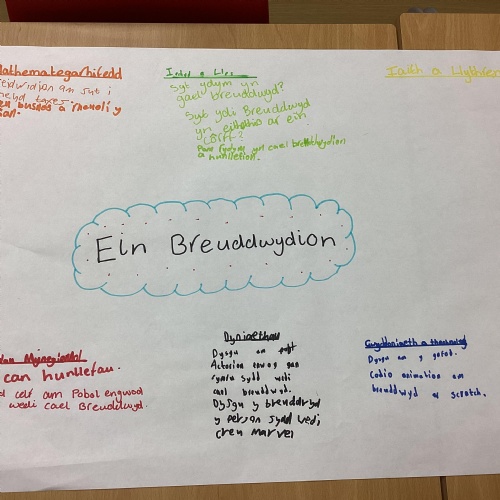 Mathemateg a rhifedd
am sut i
taxes.
busnes a rheoli y
Iechyd a Lles
Sut ydym yn
gael breuddwyd?
Sut ydi Breuddwyd
yn ar ein
corff?
Pam fydym yn cael
a hunllefon.
Iaith a Llythren
Ein Breuddwydion
Mynegiannol
can hunllefau.
celf am Pobol enwog
wedi cael Breuddwyd.
Dyniaethau
Dysgu am
Actorion enwog gan
sydd wedi
cael breuddwyd.
Dysgu y breuddwyd
y person sydd wedi
creu marvel
Gwyddoniaeth a thechnoleg
Dysgu am y gofod.
Codio animation am
breuddwyd ar scratch.